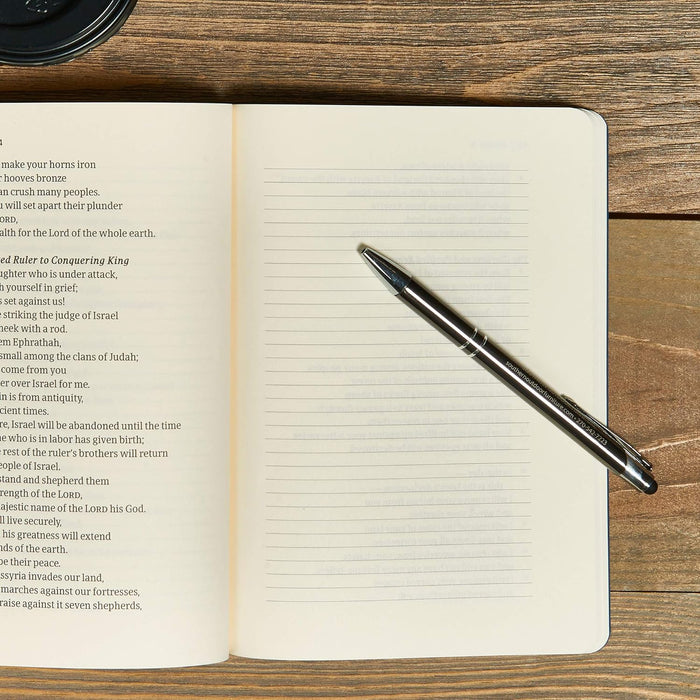 4
make your horns iron
hooves bronze
an crush many peoples.
u will set apart their plunder
LORD,
alth for the Lord of the whole earth.
ed Ruler to Conquering King
ughter who is under attack,
h yourself in grief;
s set against us!
e striking the judge of Israel
heek with a rod.
em Ephrathah,
small among the clans of Judah;
come from you
er over Israel for me.
in is from antiquity,
cient times.
re, Israel will be abandoned until the time
he who is in labor has given birth;
e rest of the ruler's brothers will return
eople of Israel.
stand and shepherd them
rength of the LORD,
ajestic name of the LORD his God.
ll live securely,
his greatness will extend
nds of the earth.
be their peace.
ssyria invades our land,
marches against our fortresses,
raise against it seven shepherds,
southernoutdoorfurniture.com • 270-547-7223